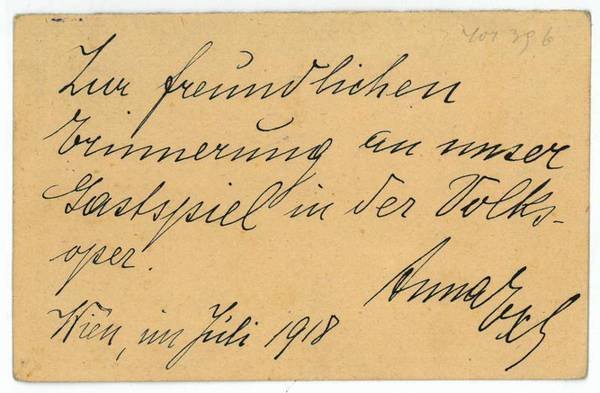 Zur freundlichen
Erinnerung an unser
Gastspiel in der Volks-
oper.
Anna Exl
Wien, im Juli 1918